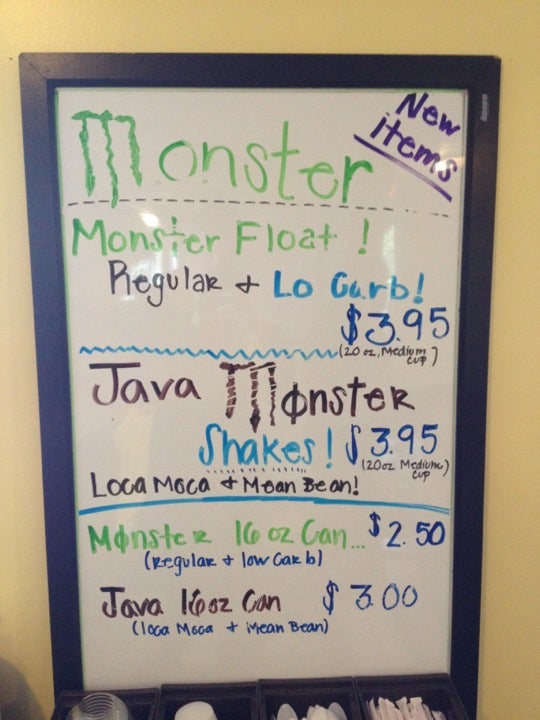 New
items
Monster
Monster Float !
Regular + Lo Carb!
$3.95
(20 oz. Medium
cup)
Java Monster
Shakes! $3.95
(20oz Medium)
cup
Loca Moca + Mean Bean!
Monster 16 oz Can... $2.50
(Regular + low Carb)
Java 16oz Can $3.00
(loca Moca + Mean Bean)